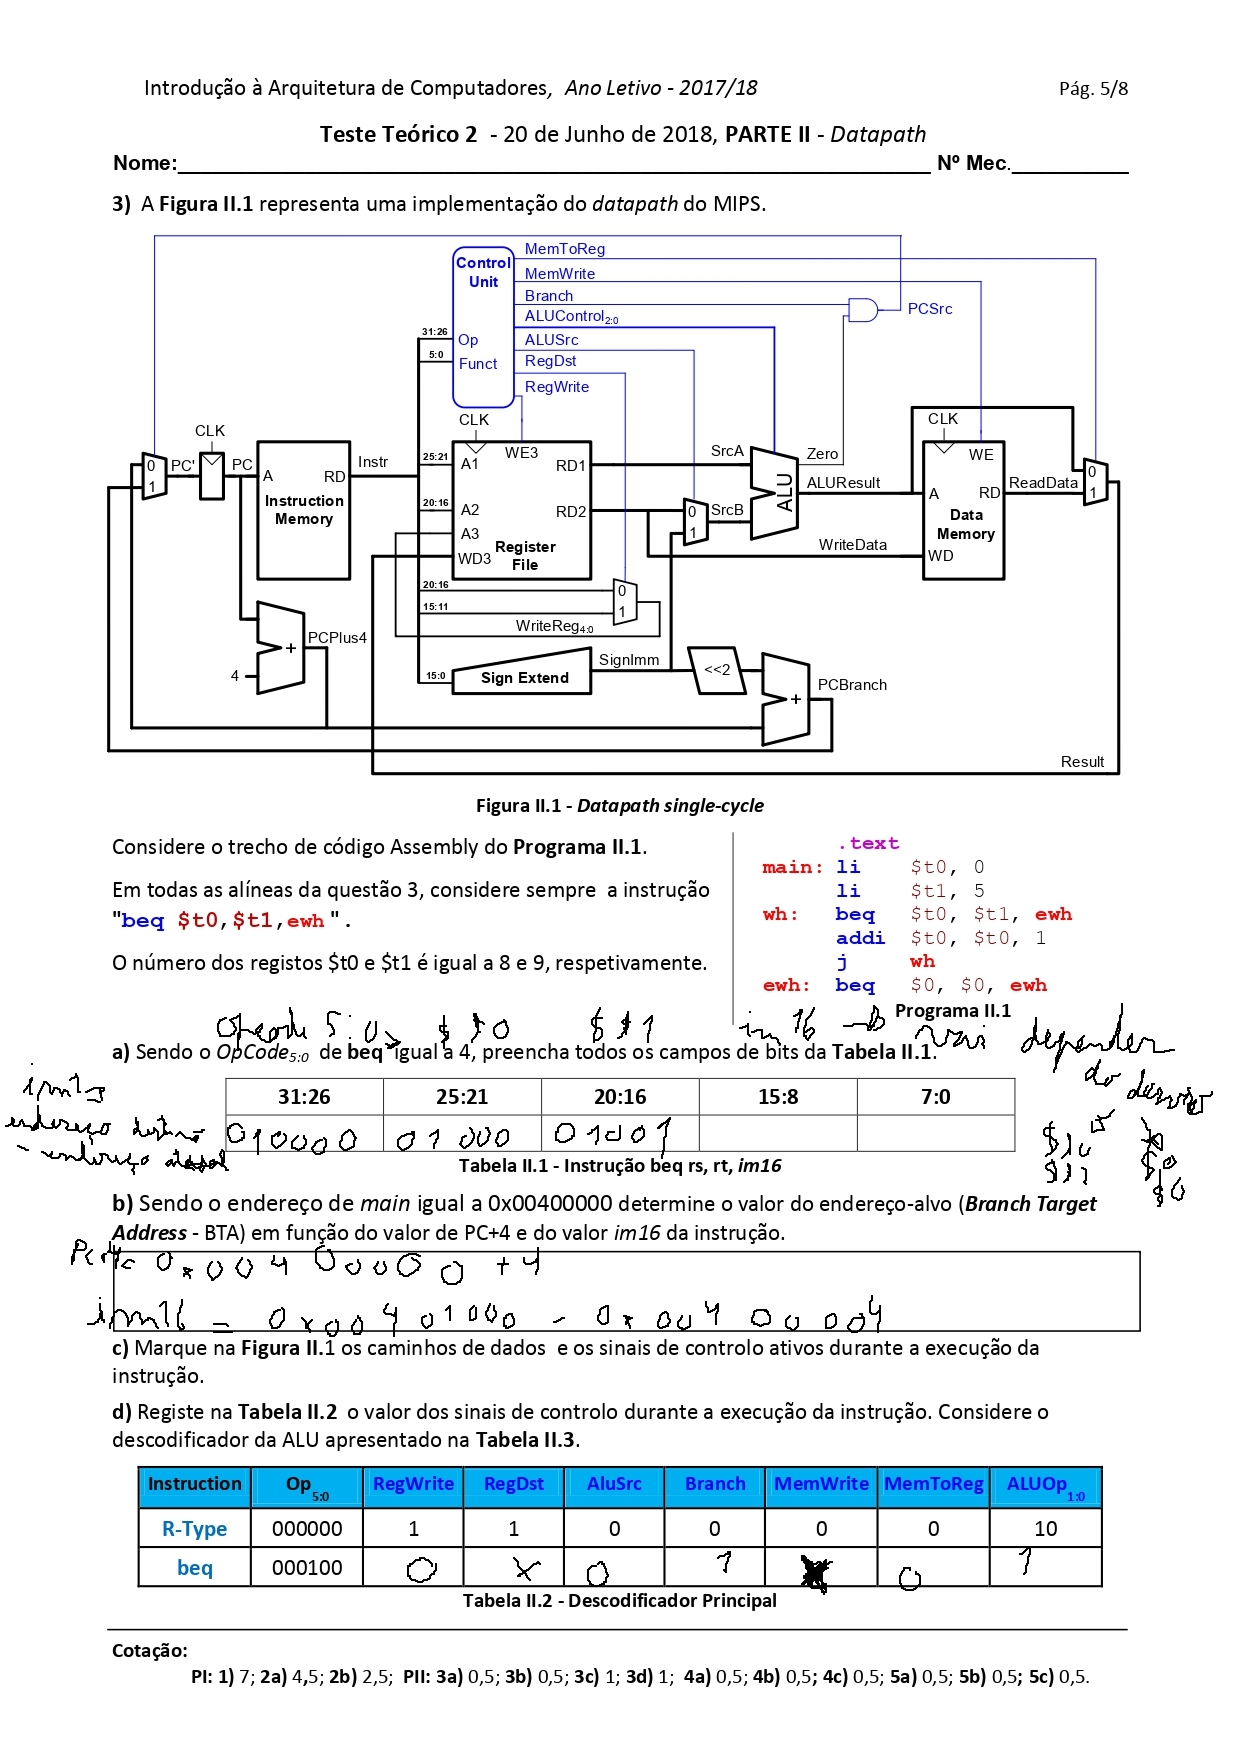 Introdução à Arquitetura de Computadores, Ano Letivo - 2017/18 Pág. 5/8
Teste Teórico 2 - 20 de Junho de 2018, PARTE II - Datapath
Nome: Nº Mec.
3) A Figura II.1 representa uma implementação do datapath do MIPS.
MemToReg
Control Unit
MemWrite
Branch
PCSrc
ALUControl2:0
31:26
Op
ALUSrc
5:0
Funct
RegDst
RegWrite
CLK
CLK
CLK
0
1
PC'
PC
A
RD
Instruction Memory
Instr
25:21
A1
WE3
RD1
SrcA
Zero
WE
20:16
A2
RD2
0
1
SrcB
ALU
ALUResult
A
RD
ReadData
0
1
A3
Data Memory
WD3
Register File
WriteData
WD
20:16
0
15:11
1
WriteReg4:0
PCPlus4
+
4
15:0
Sign Extend
SignImm
<<2
+
PCBranch
Result
Figura II.1 - Datapath single-cycle
Considere o trecho de código Assembly do Programa II.1.
Em todas as alíneas da questão 3, considere sempre a instrução
"beq $t0,$t1,ewh".
O número dos registos $t0 e $t1 é igual a 8 e 9, respetivamente.
.text
main: li $t0, 0
li $t1, 5
wh: beq $t0, $t1, ewh
addi $t0, $t0, 1
j wh
ewh: beq $0, $0, ewh
Programa II.1
im 16 vai depender
a) Sendo o OpCode5:0 de beq igual a 4, preencha todos os campos de bits da Tabela II.1.
31:26 25:21 20:16 15:8 7:0
010000 01000 01001
Tabela II.1 - Instrução beq rs, rt, im16
b) Sendo o endereço de main igual a 0x00400000 determine o valor do endereço-alvo (Branch Target
Address - BTA) em função do valor de PC+4 e do valor im16 da instrução.
0x00400000 +4
im16 = 0x00401000 - 0x00400004
c) Marque na Figura II.1 os caminhos de dados e os sinais de controlo ativos durante a execução da
instrução.
d) Registe na Tabela II.2 o valor dos sinais de controlo durante a execução da instrução. Considere o
descodificador da ALU apresentado na Tabela II.3.
Instruction Op5:0 RegWrite RegDst AluSrc Branch MemWrite MemToReg ALUOp1:0
R-Type 000000 1 1 0 0 0 0 10
beq 000100 0 x 0 1 0 1
Tabela II.2 - Descodificador Principal
Cotação:
PI: 1) 7; 2a) 4,5; 2b) 2,5; PII: 3a) 0,5; 3b) 0,5; 3c) 1; 3d) 1; 4a) 0,5; 4b) 0,5; 4c) 0,5; 5a) 0,5; 5b) 0,5; 5c) 0,5.